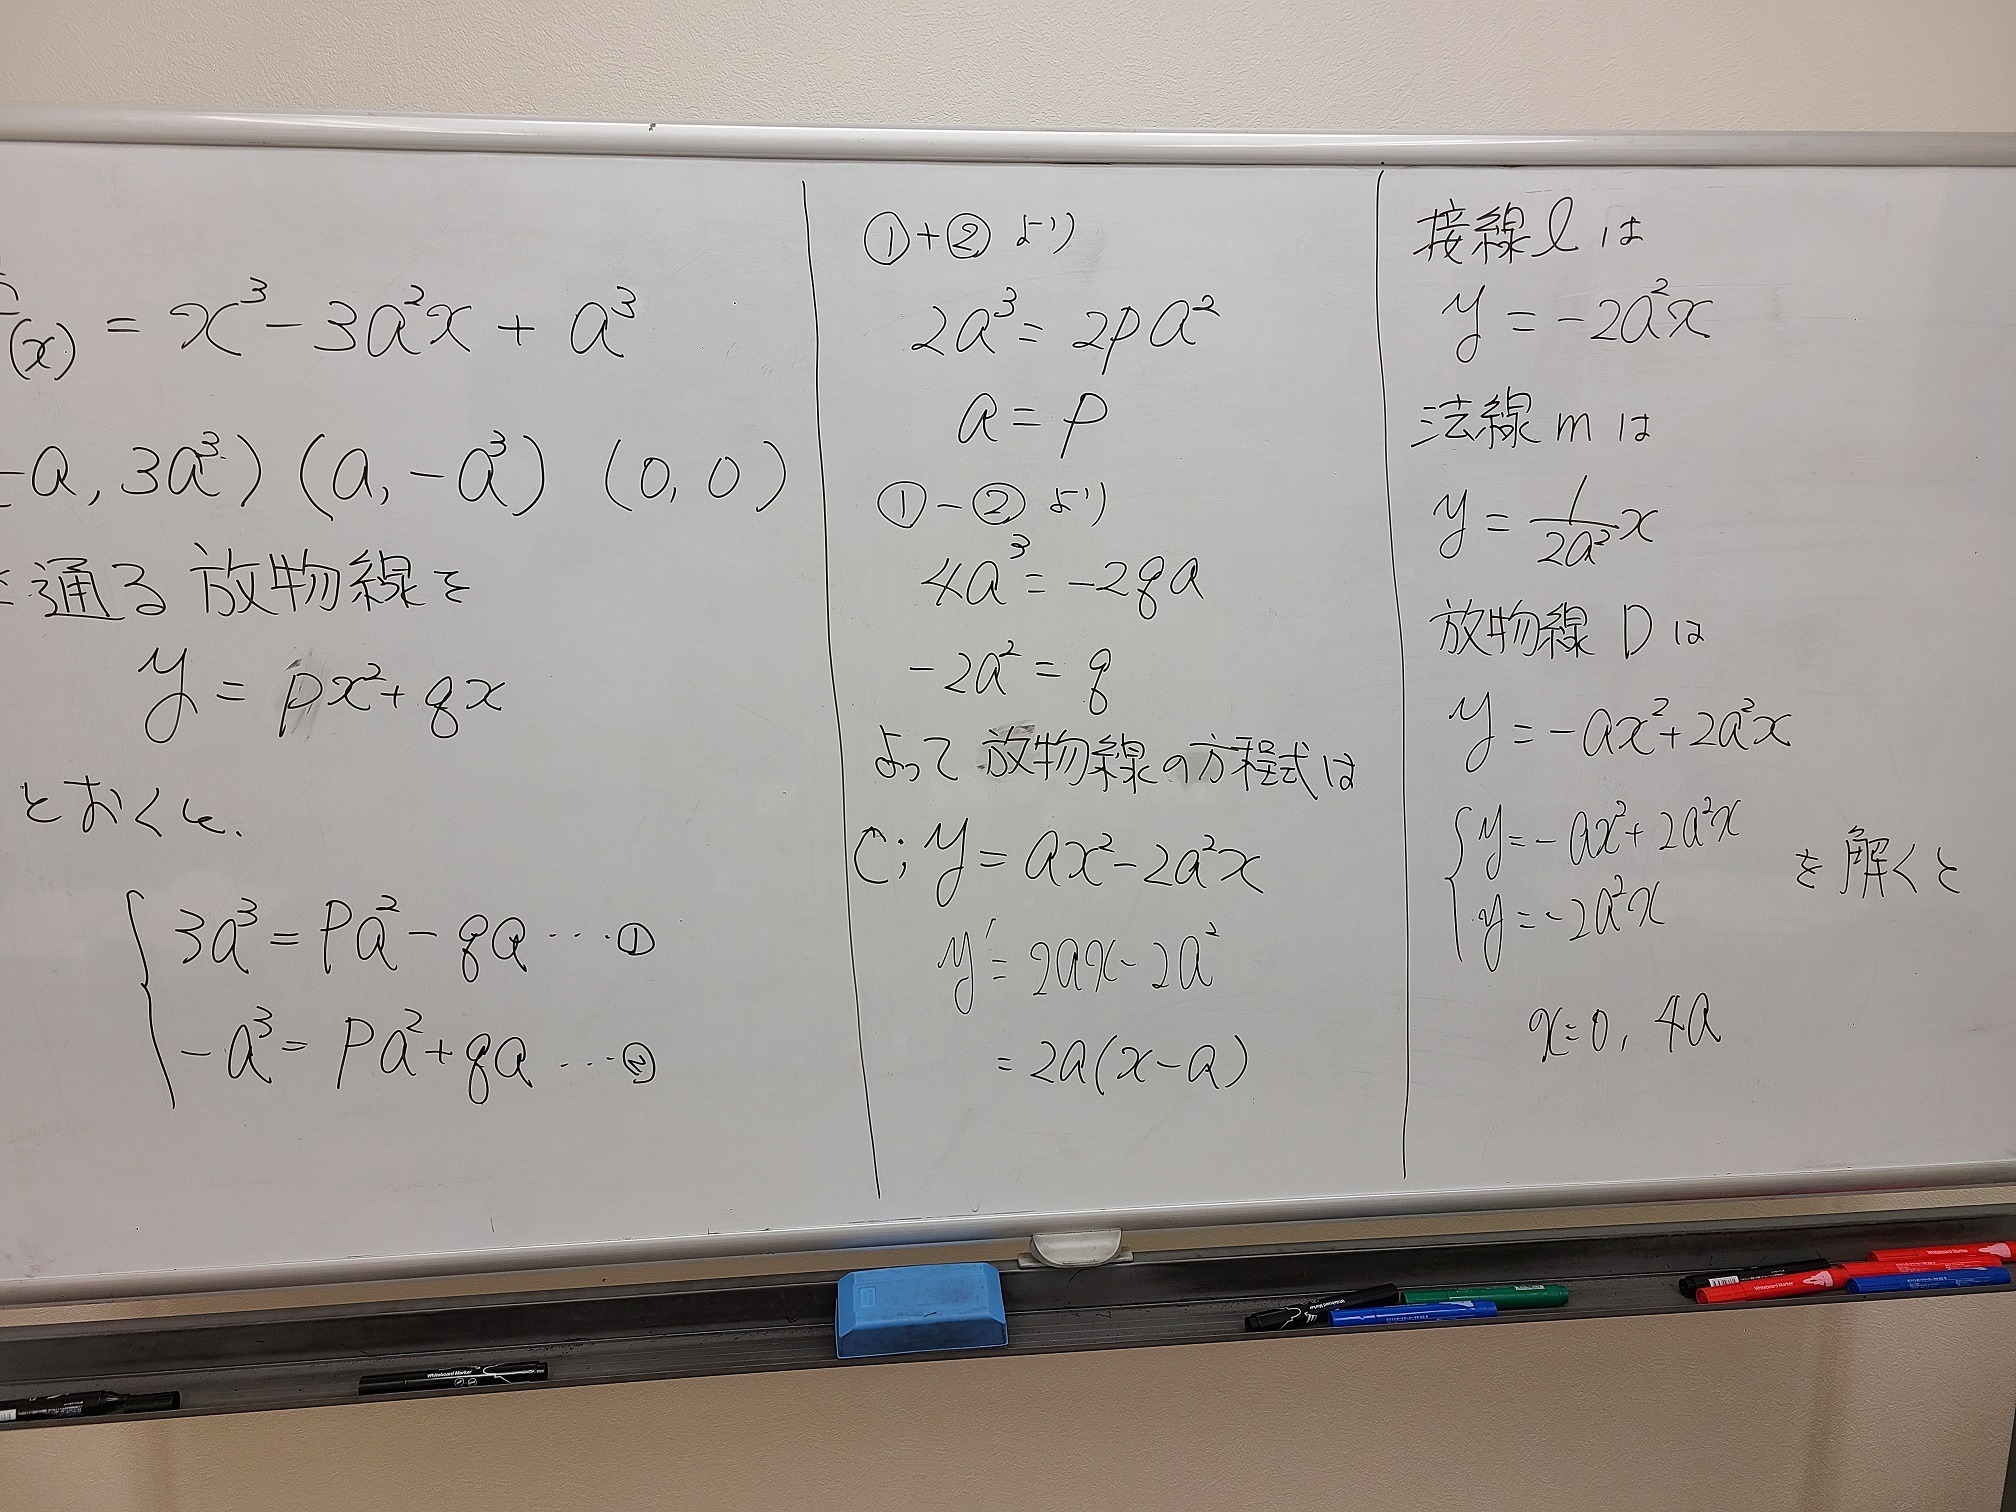 (x) = x³ - 3a²x + a³
-a, 3a³) (a, -a³) (0, 0)
を通る放物線を
y = px² + qx
とおくと、
3a³ = pa² - qa … ①
-a³ = pa² + qa … ②
① + ② より
2a³ = 2pa²
a = p
① - ② より
4a³ = -2qa
-2a² = q
よって放物線の方程式は
C; y = ax² - 2a²x
y' = 2ax - 2a²
= 2a(x - a)
接線 l は
y = -2a²x
法線 m は
y = 1/2a² x
放物線 D は
y = -ax² + 2a²x
y = -ax² + 2a²x
y = -2a²x
を解くと
x = 0, 4a
Whiteboard Marker
Whiteboard Marker
Whiteboard Marker